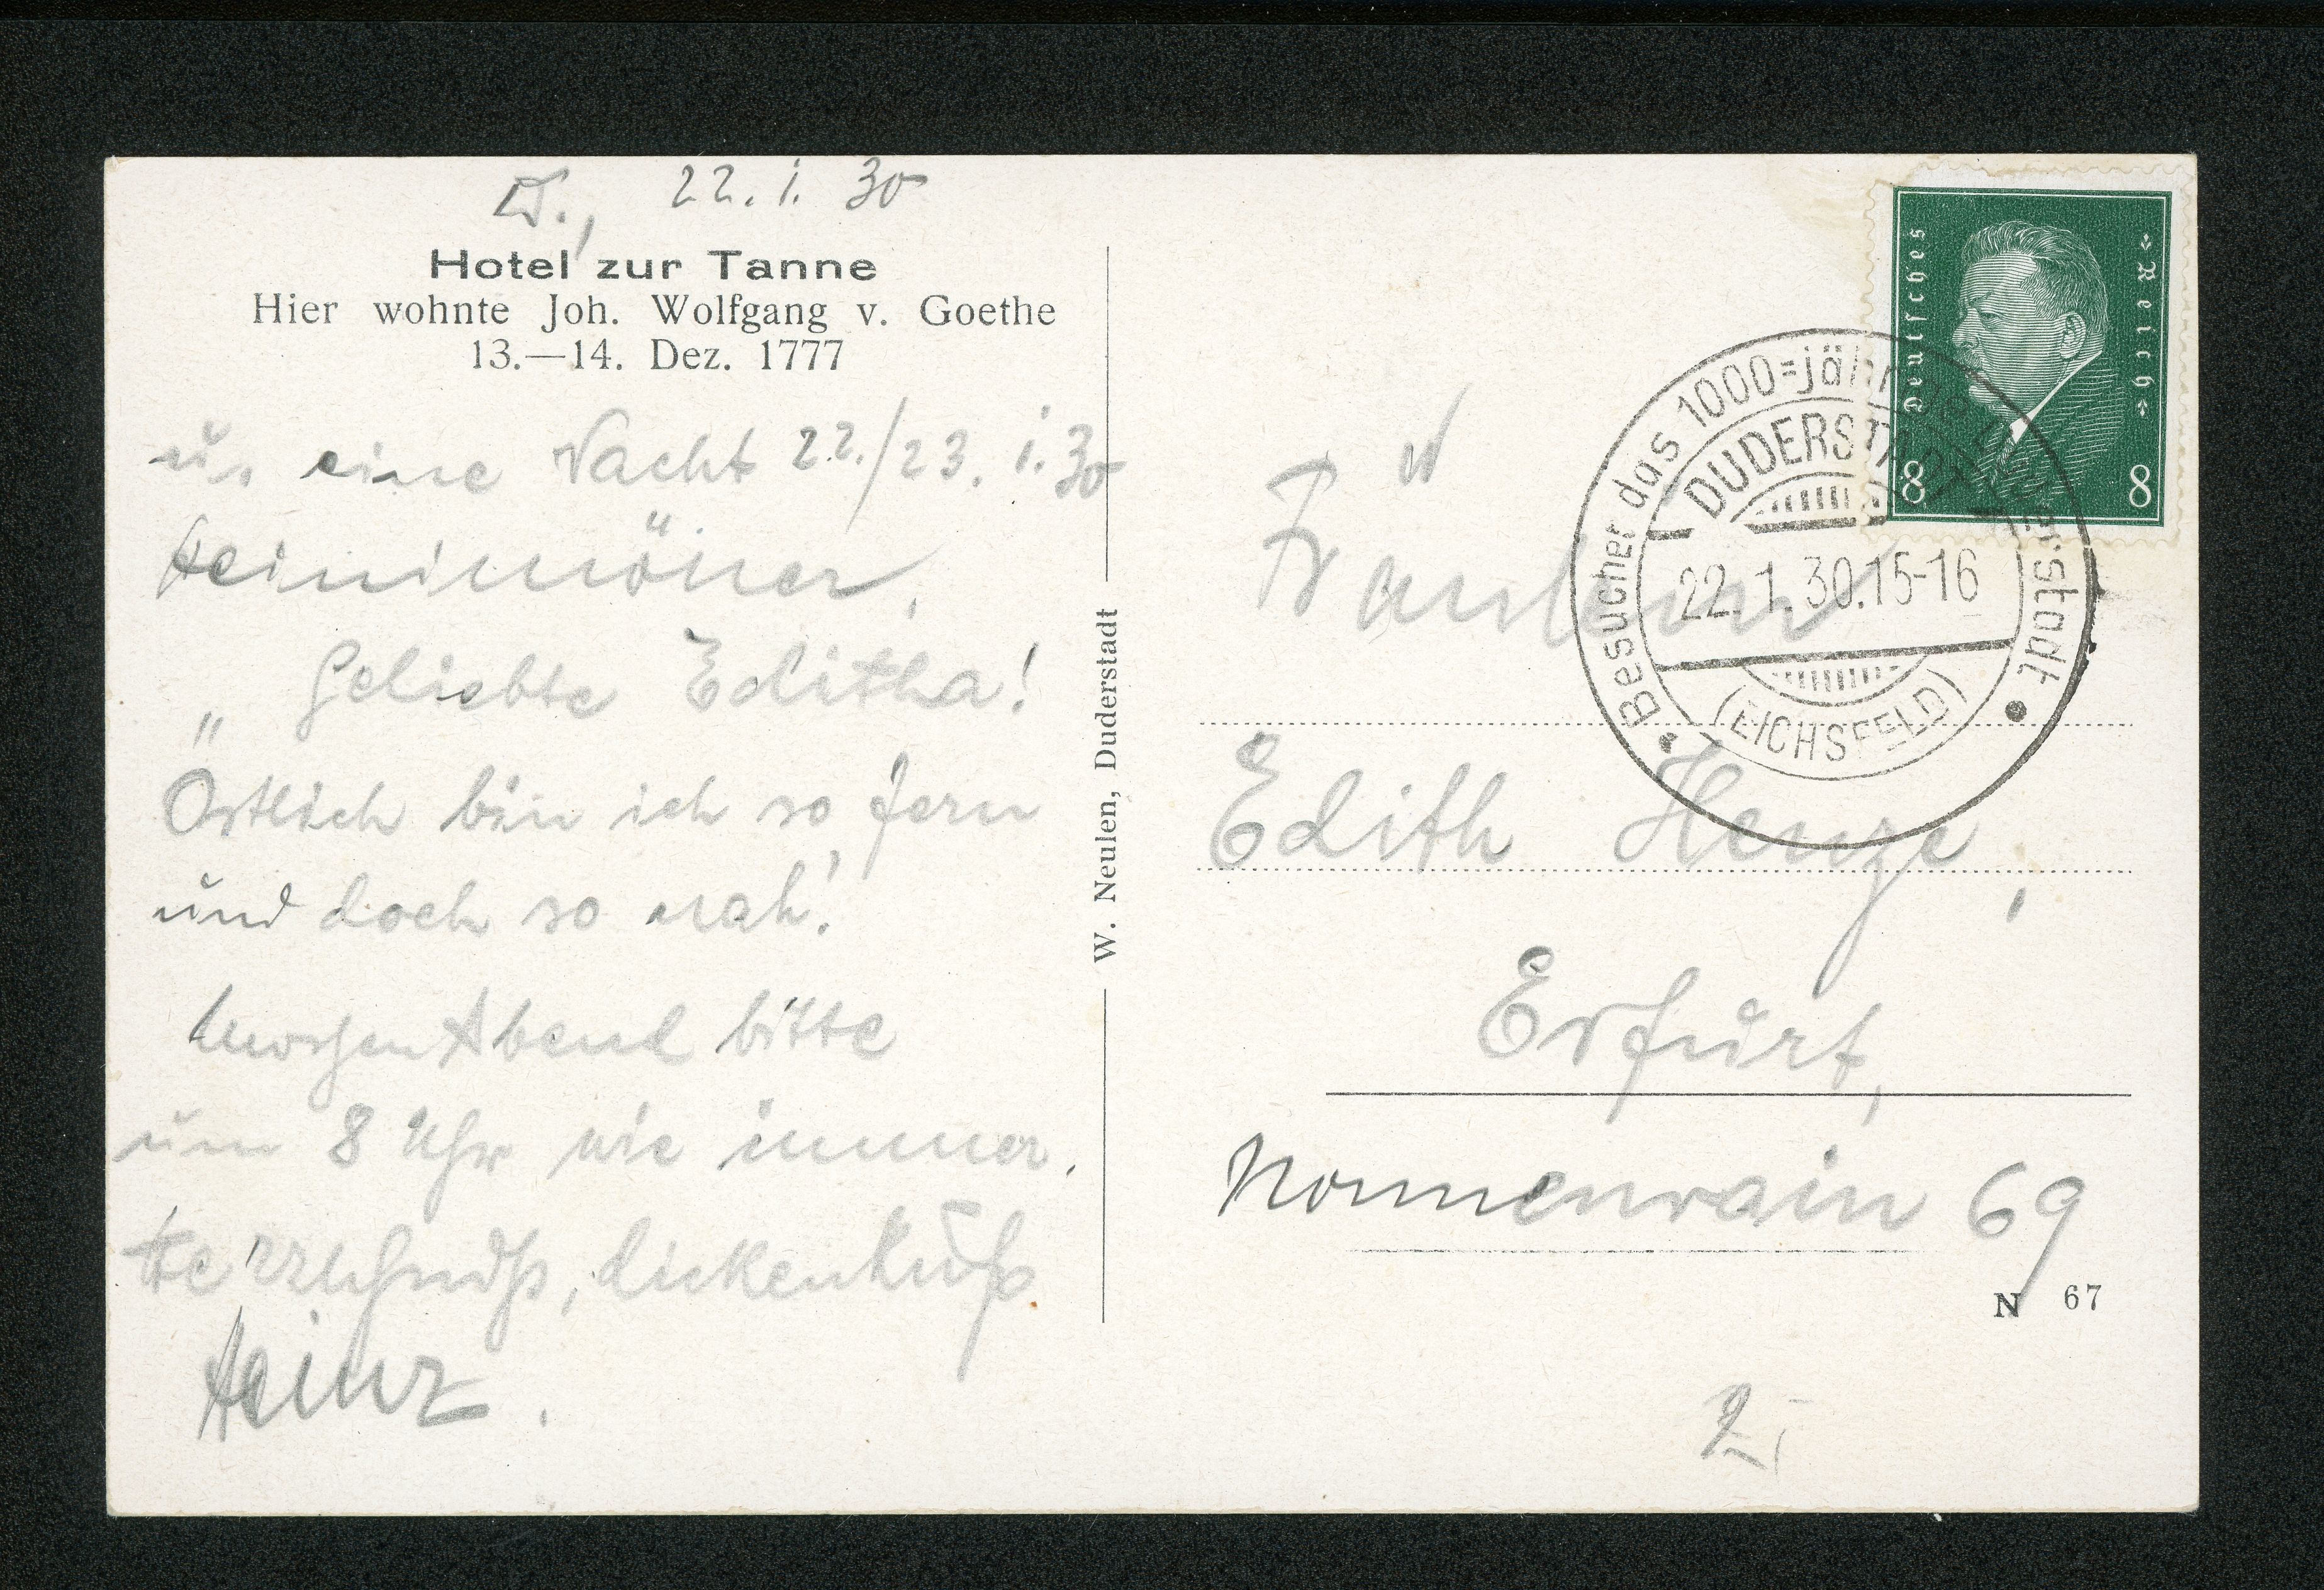 D., 22. 1. 30
Hotel zur Tanne
Hier wohnte Joh. Wolfgang v. Goethe
13.—14. Dez. 1777
u. eine Nacht 22./23. 1. 30
Heinimöner,
Geliebte Editha!
Östlich bin ich so fern
und doch so nah!
Morgen Abend bitte
um 8 Uhr wie immer.
dicken Kuß
Heinz.
W. Neulen, Duderstadt
Deutsches Reich
8 8
Besucher das 1000=jährige Duderstadt
DUDERSTADT
22. 1. 30. 15-16
(EICHSFELD)
Fräulein
Edith Henze,
Erfurt,
Nonnenrain 69
N 67
2,-